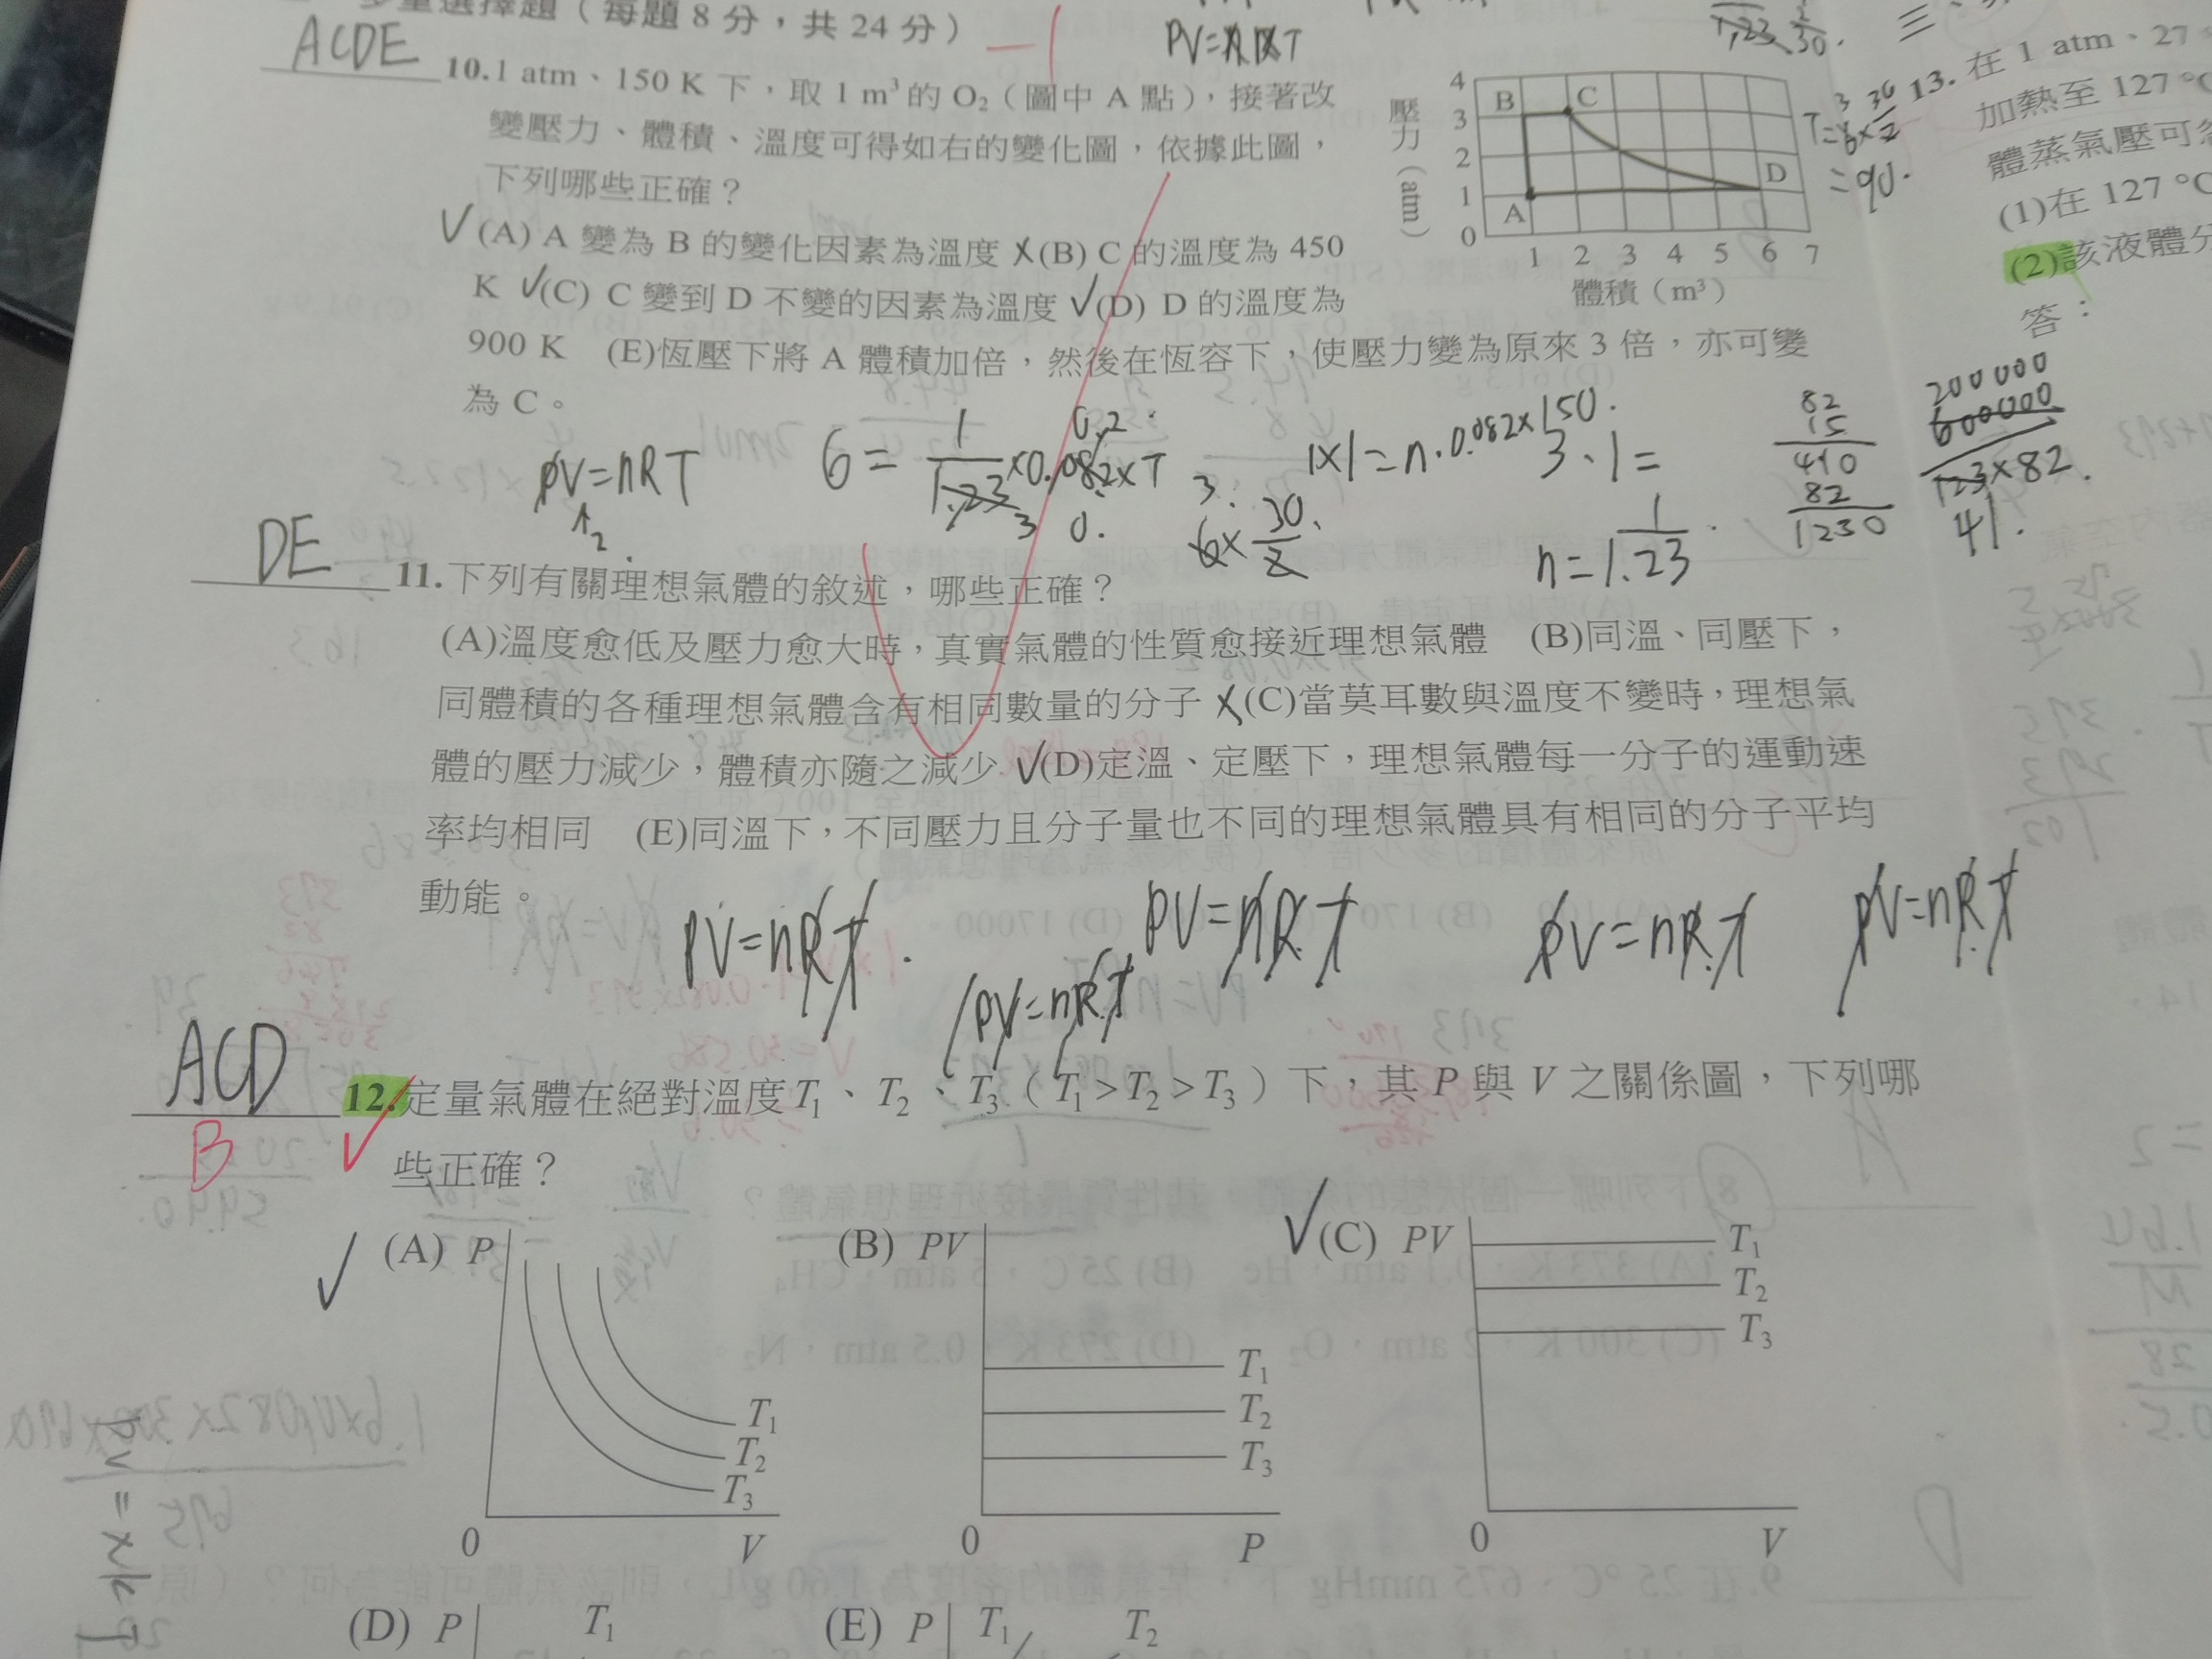 多重選擇題（每題8分，共24分）
−1
PV=nRT
ACDE
10. 1 atm、150 K 下，取 1 m³ 的 O₂（圖中 A 點），接著改
變壓力、體積、溫度可得如右的變化圖，依據此圖，
下列哪些正確？
✓(A) A 變為 B 的變化因素為溫度 X(B) C 的溫度為 450
K ✓(C) C 變到 D 不變的因素為溫度 ✓(D) D 的溫度為
900 K (E)恆壓下將 A 體積加倍，然後在恆容下，使壓力變為原來 3 倍，亦可變
為 C。
壓力（atm）
4
3
2
1
0
B
C
A
D
1 2 3 4 5 6 7
體積（m³）
=90.
13. 在 1 atm、27
加熱至 127 °C
體蒸氣壓可
(1)在 127 °C
(2)該液體分
答：
PV=nRT
6=1/1.23×0.082×T
1×1=n.0.082×150.
3.1=
n=1/1.23
6×30/2
82
15
410
82
1230
200000
600000
123×82.
41.
DE
11. 下列有關理想氣體的敘述，哪些正確？
(A)溫度愈低及壓力愈大時，真實氣體的性質愈接近理想氣體 (B)同溫、同壓下，
同體積的各種理想氣體含有相同數量的分子 X(C)當莫耳數與溫度不變時，理想氣
體的壓力減少，體積亦隨之減少 ✓(D)定溫、定壓下，理想氣體每一分子的運動速
率均相同 (E)同溫下，不同壓力且分子量也不同的理想氣體具有相同的分子平均
動能。
PV=nRT. PV=nRT PV=nRT PV=nRT
PV=nRT
ACD
B
12. 定量氣體在絕對溫度 T₁、T₂、T₃（T₁>T₂>T₃）下，其 P 與 V 之關係圖，下列哪
些正確？
✓ (A) P
T₁
T₂
T₃
0 V
(B) PV
T₁
T₂
T₃
0 P
✓(C) PV
T₁
T₂
T₃
0 V
(D) P T₁
(E) P T₁ T₂